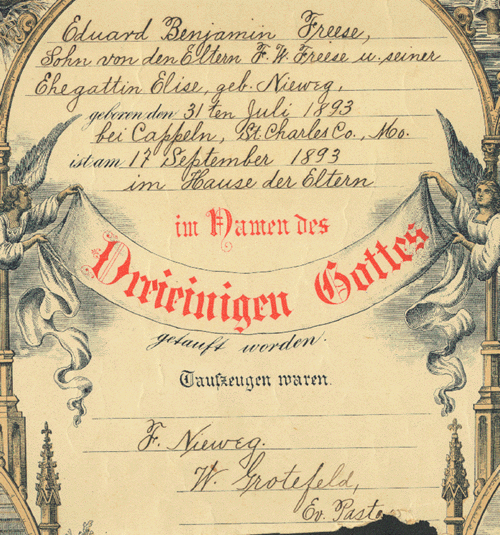 Eduard Benjamin Freese,
Sohn von den Eltern F. W. Freese u. seiner
Ehegattin Elise, geb. Nieweg,
geboren den 31ten Juli 1893
bei Cappeln, St. Charles Co., Mo.
ist am 17 September 1893
im Hause der Eltern
im Namen des
Dreieinigen Gottes
getauft worden.
Taufzeugen waren.
F. Nieweg.
W. Grotefeld,
Ev. Pastor